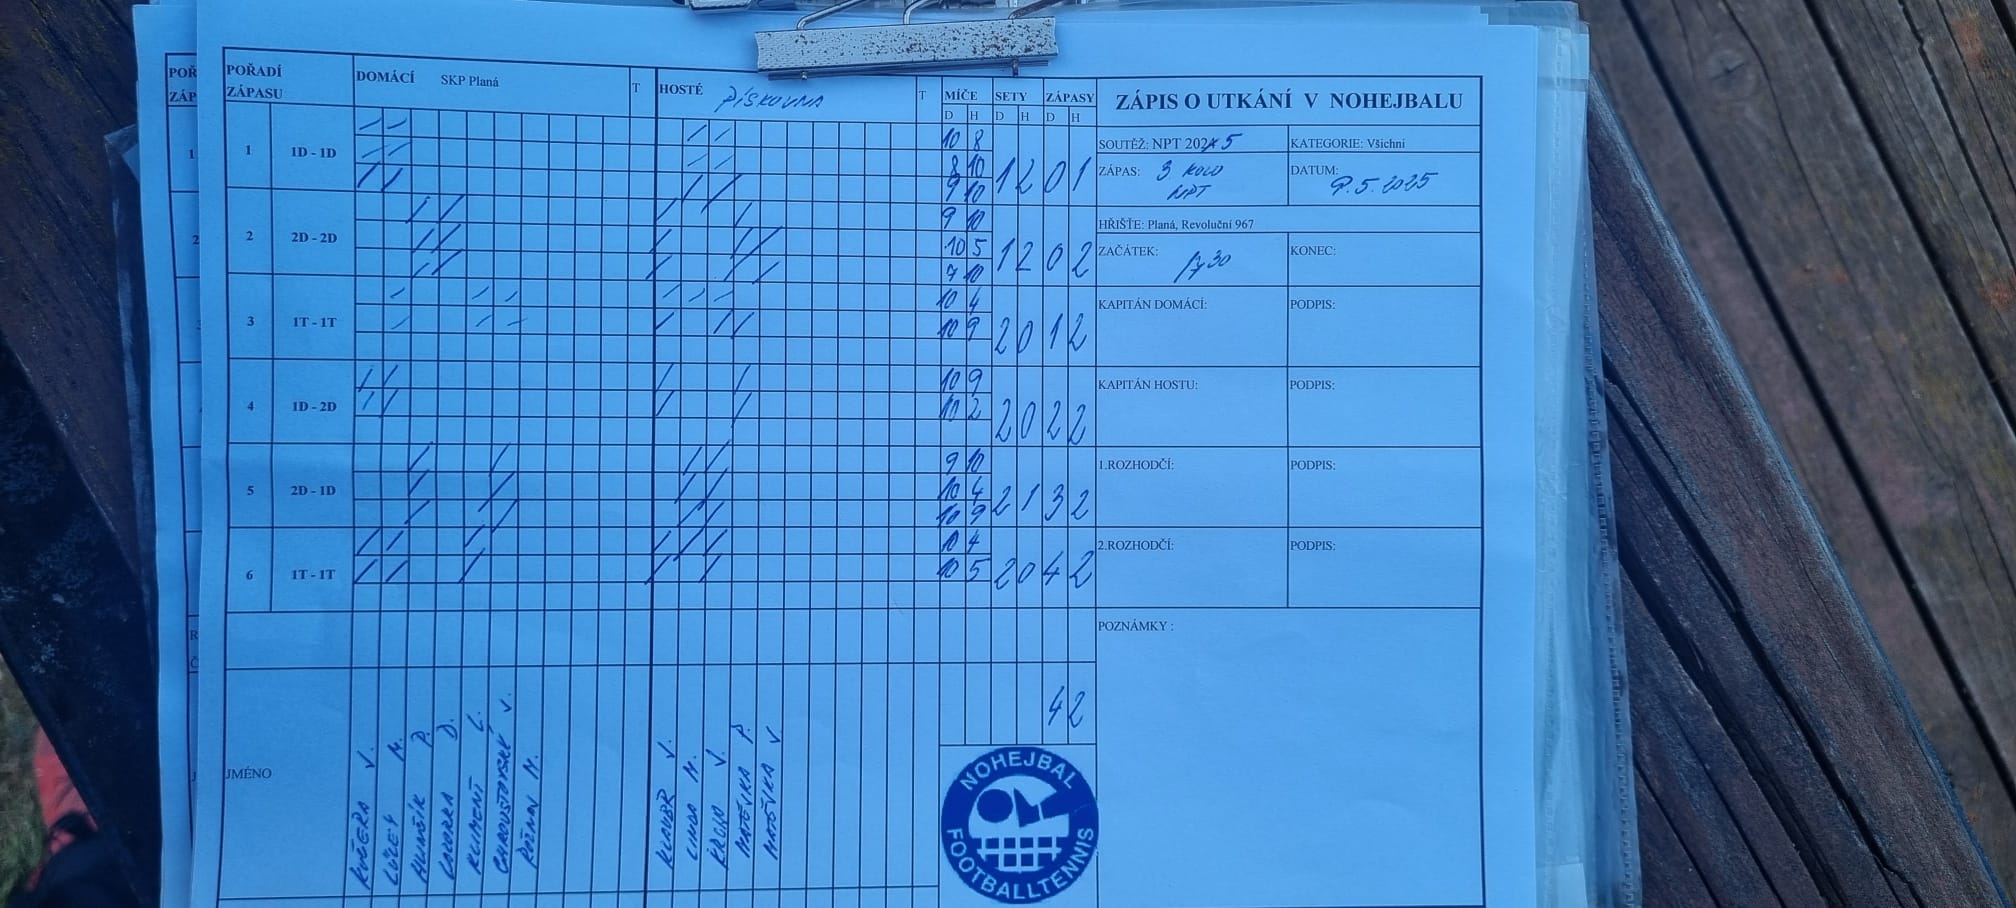 POŘADÍ ZÁPASU DOMÁCÍ SKP Planá T HOSTÉ PÍSKOVNA T MÍČE SETY ZÁPASY
D H D H D H
ZÁPIS O UTKÁNÍ V NOHEJBALU
SOUTĚŽ: NPT 2025 KATEGORIE: Všichni
ZÁPAS: 3 KOLO NPT DATUM: 9.5.2025
HŘIŠTĚ: Planá, Revoluční 967
ZAČÁTEK: 17 30 KONEC:
KAPITÁN DOMÁCÍ: PODPIS:
KAPITÁN HOSTU: PODPIS:
1.ROZHODČÍ: PODPIS:
2.ROZHODČÍ: PODPIS:
POZNÁMKY :
1 1D - 1D 10 8
8 10 1 2 0 1
9 10
2 2D - 2D 9 10
10 5 1 2 0 2
7 10
3 1T - 1T 10 4
10 9 2 0 1 2
4 1D - 2D 10 9
10 2 2 0 2 2
5 2D - 1D 9 10
10 4 2 1 3 2
10 9
6 1T - 1T 10 4
10 5 2 0 4 2
4 2
JMÉNO
KUČERA V.
M.
P.
D.
KLIMENT L.
CHAROUSTOVSKÝ V.
M.
KLAUBR V.
LINDA M.
V.
MATĚJKA P.
MATĚJKA V
NOHEJBAL
FOOTBALLTENNIS
POŘ
ZÁP
1
2